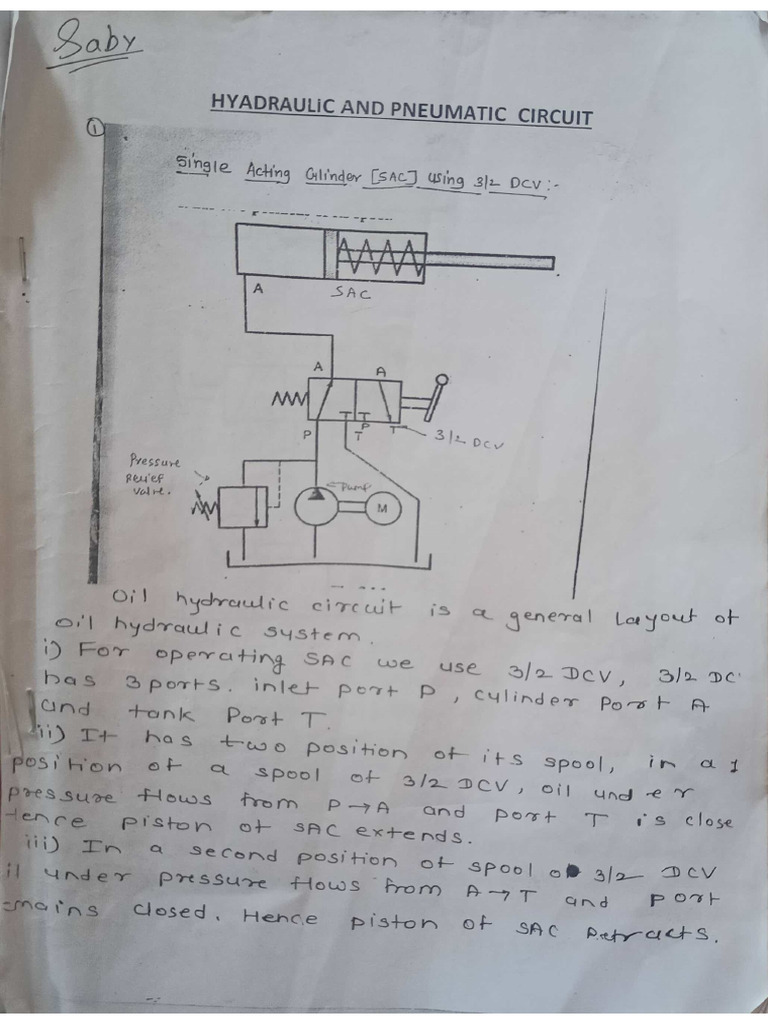 Saby
HYADRAULiC AND PNEUMATIC CIRCUIT
1
Single Acting Cylinder [SAC] using 3/2 DCV:-
A
SAC
A
A
P
T
P
T
3/2 DCV
Pressure
Relief
Valve.
Pump
M
Oil hydraulic circuit is a general Layout of
oil hydraulic system.
i) For operating SAC we use 3/2 DCV, 3/2 DC
has 3 ports. inlet port P, cylinder Port A
and tank Port T.
ii) It has two position of its spool, in a 1
position of a spool of 3/2 DCV, oil under
pressure flows from P→A and port T is close
Hence piston of SAC extends.
iii) In a second position of spool of 3/2 DCV
il under pressure flows from A→T and port
mains closed. Hence piston of SAC Retracts.